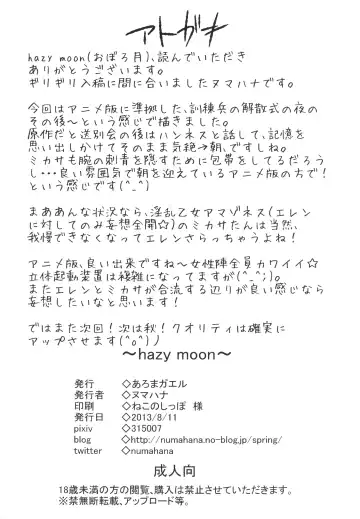 アトガキ
hazy moon(おぼろ月)、読んでいただき
ありがとうございます。
ギリギリ入稿に間に合いましたヌマハナです。
今回はアニメ版に準拠した、訓練兵の解散式の夜の
その後～という感じで描きました。
原作だと送別会の後はハンネスと話して、記憶を
思い出しかけてそのまま気絶→朝、ですしね。
ミカサも腕の刺青を隠すために包帯をしてるだろう
し・・・良い雰囲気で朝を迎えているアニメ版の方で!
という感じです(^_^)
まああんな状況なら、淫乱乙女アマゾネス(エレン
に対してのみ妄想全開☆)のミカサたんは当然、
我慢できなくなってエレンさらっちゃうよね!
アニメ版、良い出来ですね～女性陣全員カワイイ☆
立体起動装置は複雑になってますが(^_^;)。
またエレンとミカサが合流する辺りが良い感じなら
妄想したいなと思います!
ではまた次回!次は秋!クオリティは確実に
アップさせます(^o^)丿
～hazy moon～
発行 ◇あろまガエル
発行者 ◇ヌマハナ
印刷 ◇ねこのしっぽ 様
発行日 ◇2013/8/11
pixiv ◇315007
blog ◇http://numahana.no-blog.jp/spring/
twitter ◇numahana
成人向
18歳未満の方の閲覧、購入は禁止させていただきます。
※禁無断転載、アップロード等。